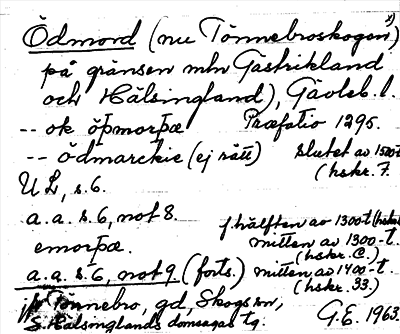 Ödmord (nu Tönnebroskogen) x)
på gränsen mln Gästrikland
och Hälsingland), Gävleb. l.
-- ok öþmorþæ Præfatio 1295.
-- ödmarckie (ej rätt) slutet av 1500-t
(hskr. F.
UL, s. 6.
a.a. s. 6, not 8. f. hälften av 1300-t (hskr
emorþæ. mitten av 1300-t.
(hskr. C.)
a.a. s. 6, not 9 (forts.) mitten av 1400-t.
(hskr. 33.)
jfr Tönnebro, gd, Skogs sn,
S. Hälsinglands domsagas tg. G.E. 1963.